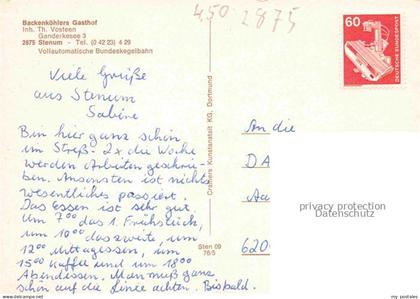 Backenköhlers Gasthof
Inh. Th. Vosteen
Ganderkesee 3
2875 Stenum - Tel. (0 42 23) 4 29
Vollautomatische Bundeskegelbahn
450 2875
60
DEUTSCHE BUNDESPOST
Viele Grüße
aus Stenum
Sabine
Bin hier ganz schön
im Streß. 2x die Woche
werden Arbeiten geschrie-
ben. Ansonsten ist nichts
wesentliches passiert.
Das Essen ist sehr gut.
Um 7⁰⁰ das 1. Frühstück,
um 10⁰⁰ das zweite, um
12⁰⁰ Mittagessen, um
15⁰⁰ Kaffee und um 18⁰⁰
Abendessen. Man muß ganz
schön auf die Linie achten. Bis bald.
Cramers Kunstanstalt KG, Dortmund
Sten 09
76/5
An die
DA
620
privacy protection
Datenschutz
my-postales.com